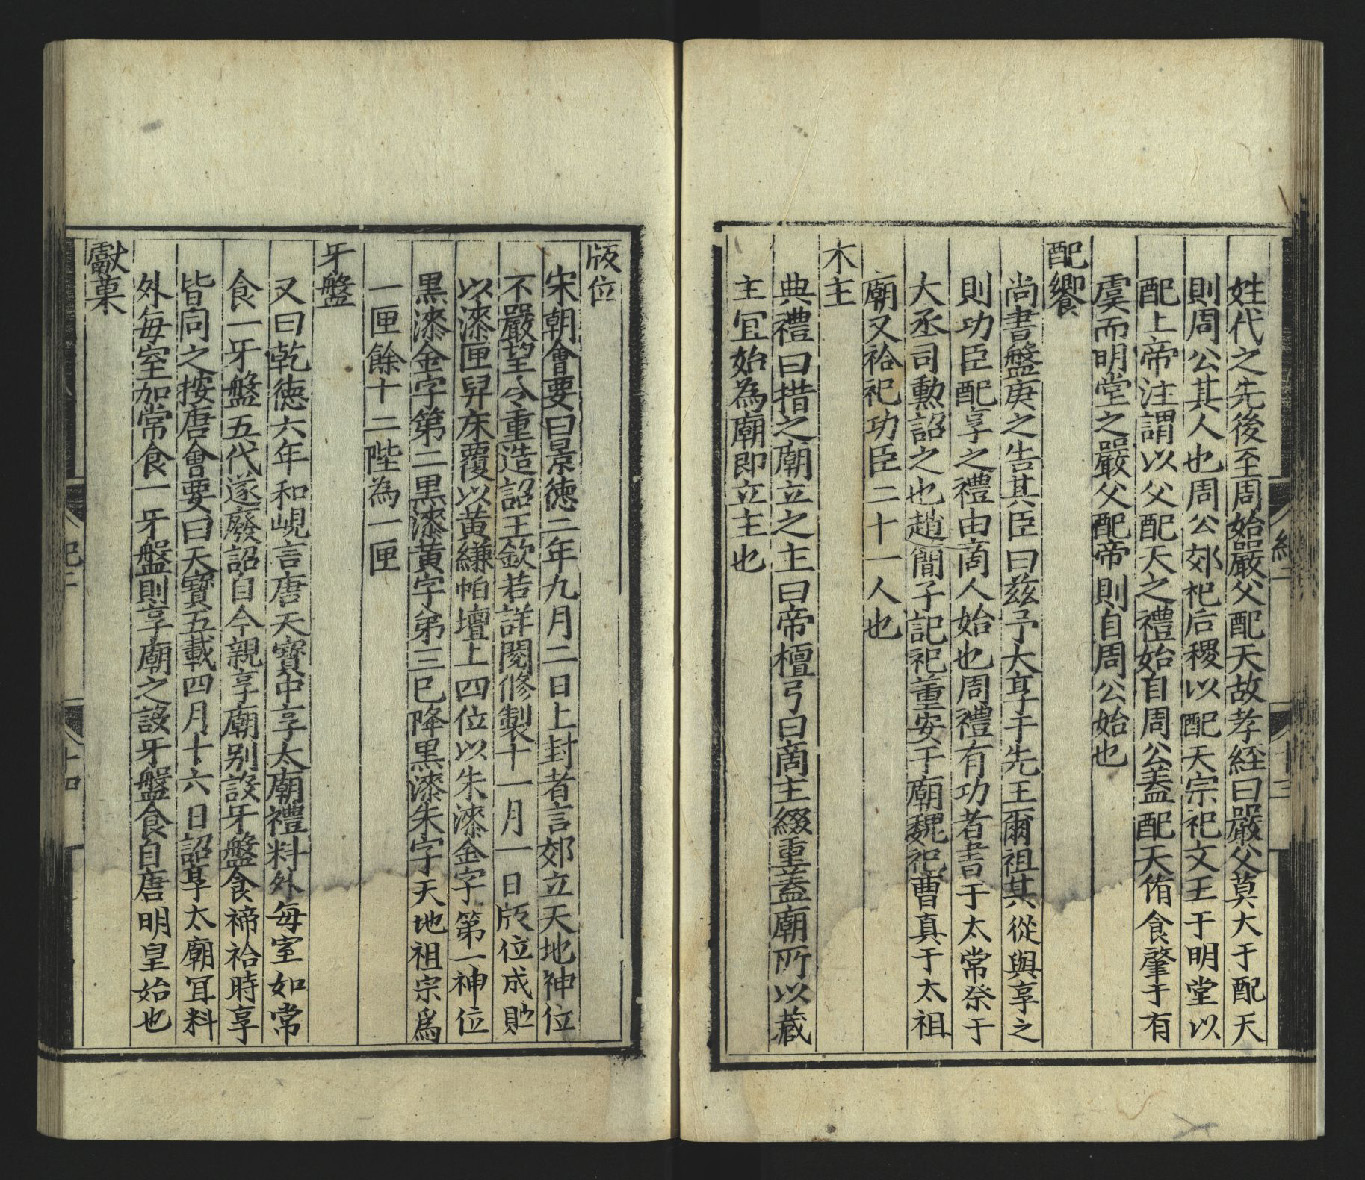 姓代之先後至周始嚴父配天故孝経曰嚴父莫大于配天
則周公其人也周公郊祀后稷以配天宗祀文王于明堂以
配上帝注謂以父配天之禮始自周公蓋配天侑食肇于有
虞而明堂之嚴父配帝則自周公始也
配饗
尚書盤庚之告其臣曰茲予大享于先王爾祖其從與享之
則功臣配享之禮由商人始也周禮有功者書于太常祭于
大丞司勲詔之也趙簡子記祀董安于廟魏祀曹真于太祖
廟又祫祀功臣二十一人也
木主
典禮曰措之廟立之主曰帝檀弓曰商主綴重蓋廟所以藏
主冝始為廟即立主也
版位
宋朝會要曰景徳二年九月二日上封者言郊立天地神位
不嚴望令重造詔王欽若詳閱修製十一月一日版位成貯
以漆匣舁床覆以黄縑帕壇上四位以朱漆金字第一神位
黒漆金字第二黒漆黄字弟三已降黒漆朱字天地祖宗爲
一匣餘十二陛為一匣
牙盤
又曰乾徳六年和峴言唐天寳中享太廟禮料外毎室如常
食一牙盤五代遂廢詔自今親享廟别設牙盤食禘祫時享
皆同之按唐會要曰天寳五載四月十六日詔享太廟冝料
外毎室加常食一牙盤則享廟之設牙盤食自唐明皇始也
獻菓
紀二
十四